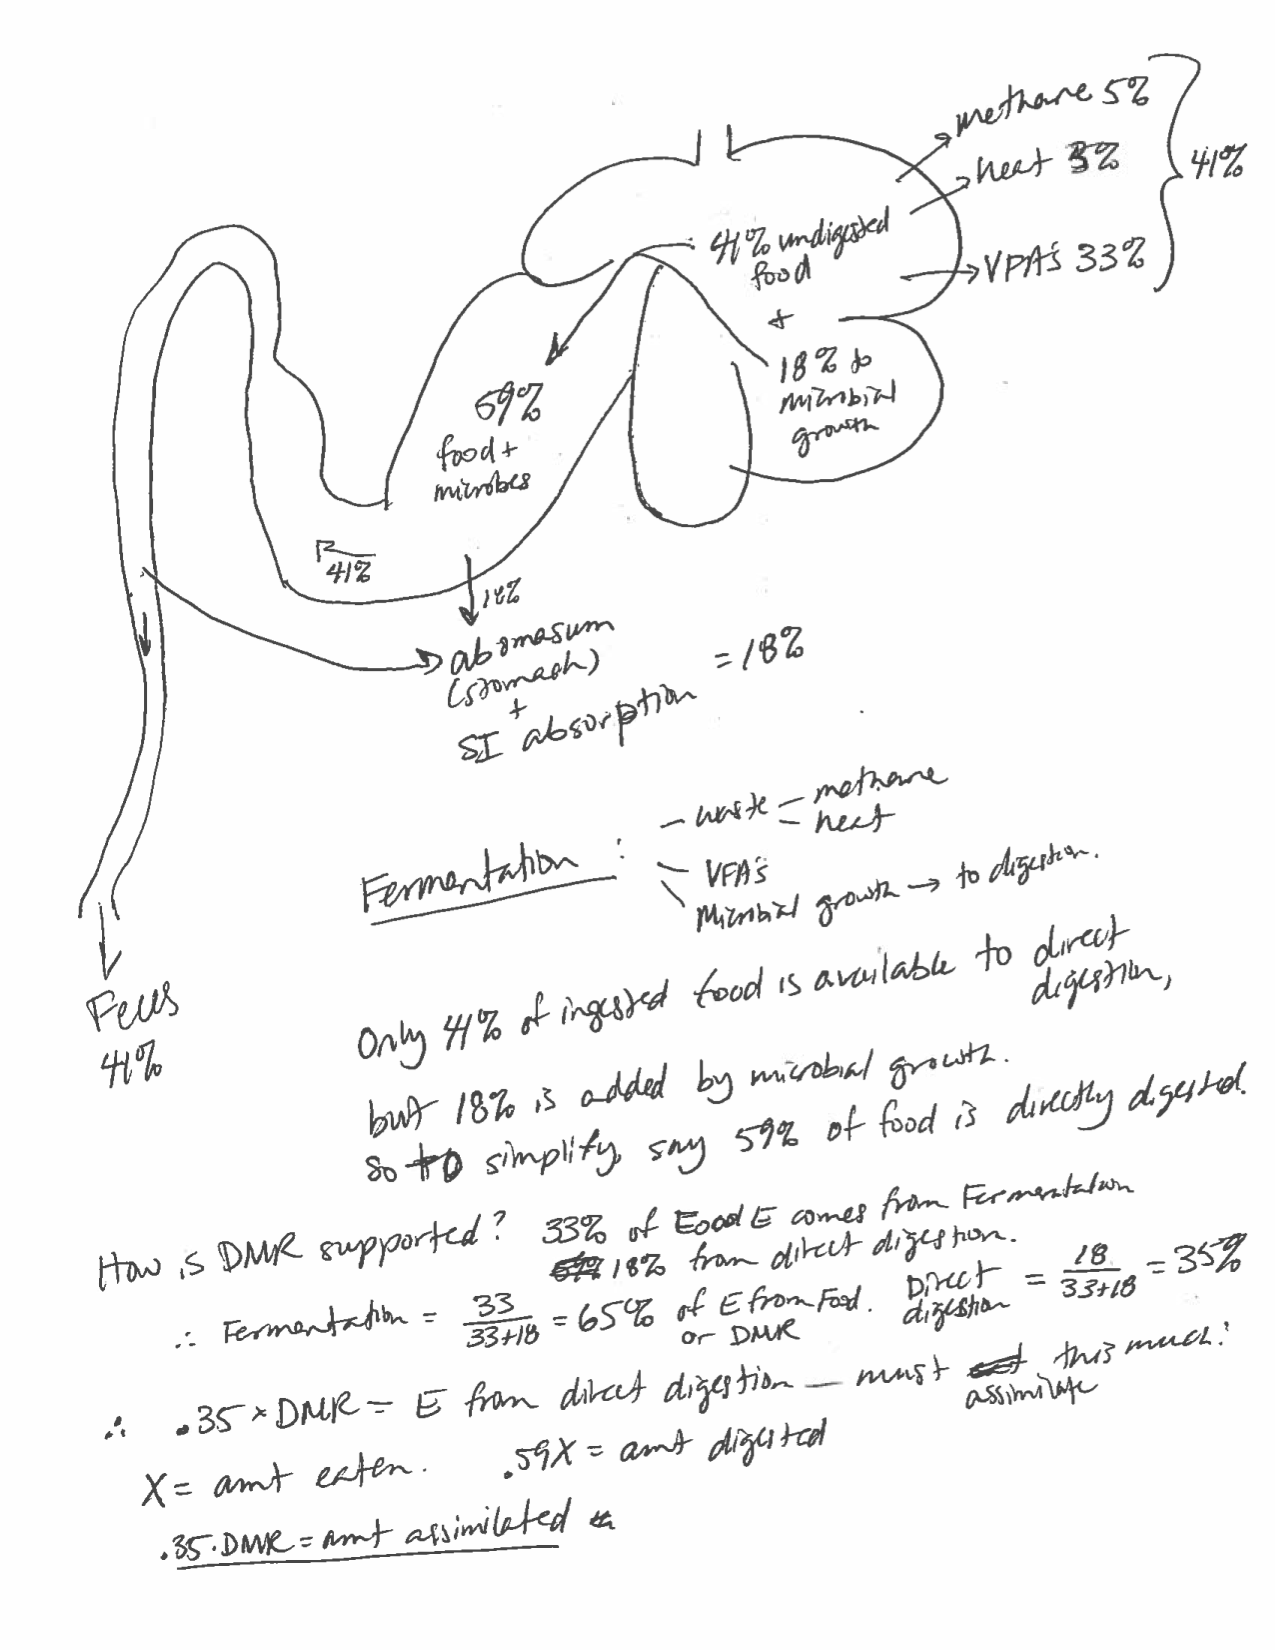 methane 5%
heat 3%
41%
41% undigested
food
+
VPA's 33%
18% to
microbial
growth
59%
food +
microbes
41%
18%
abomasum
(stomach)
+
SI absorption
= 18%
Fermentation :
- waste - methane
- heat
- VFA's
\ Microbial growth → to digestion.
Feces
41%
Only 41% of ingested food is available to direct
digestion,
but 18% is added by microbial growth.
So to simplify, say 59% of food is directly digested.
How is DMR supported? 33% of Food E comes from Fermentation
18% from direct digestion.
∴ Fermentation = 33/33+18 = 65% of E from Food. Direct digestion = 18/33+18 = 35%
or DMR
∴ .35 × DMR = E from direct digestion — must assimilate this much.
X = amt eaten. .59X = amt digested
.35·DMR = amt assimilated